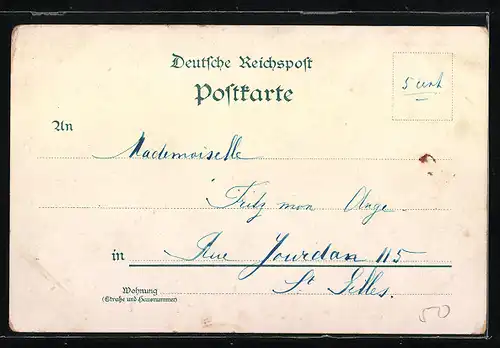 Deutsche Reichspost
Postkarte
5 cent
An
Mademoiselle
Fritz mon Ange
in Rue Jourdan 115
St Gilles.
Wohnung
(Straße und Hausnummer)
50